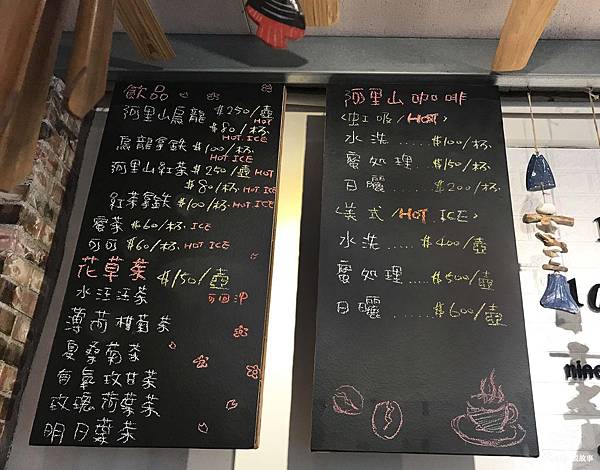 飲品
阿里山烏龍 $250/壺 HOT
$80/杯 HOT
烏龍拿鉄 $100/杯 HOT ICE
阿里山紅茶 $250/壺 HOT
$80/杯 HOT ICE
紅茶拿鉄 $100/杯 HOT ICE
愛茶 $60/杯 ICE
可可 $60/杯 HOT ICE
花草茶 $150/壺
水汪汪茶 可回沖
薄荷柑菊茶
夏桑菊茶
有氧玫甘茶
玫瑰荷葉茶
明月葉茶
阿里山咖啡
<虹吸/HOT>
水洗 ..... $100/杯
蜜処理 .... $150/杯
日曬 ..... $200/杯
<美式/HOT ICE>
水洗 ..... $400/壺
蜜処理 .... $500/壺
日曬 ..... $600/壺